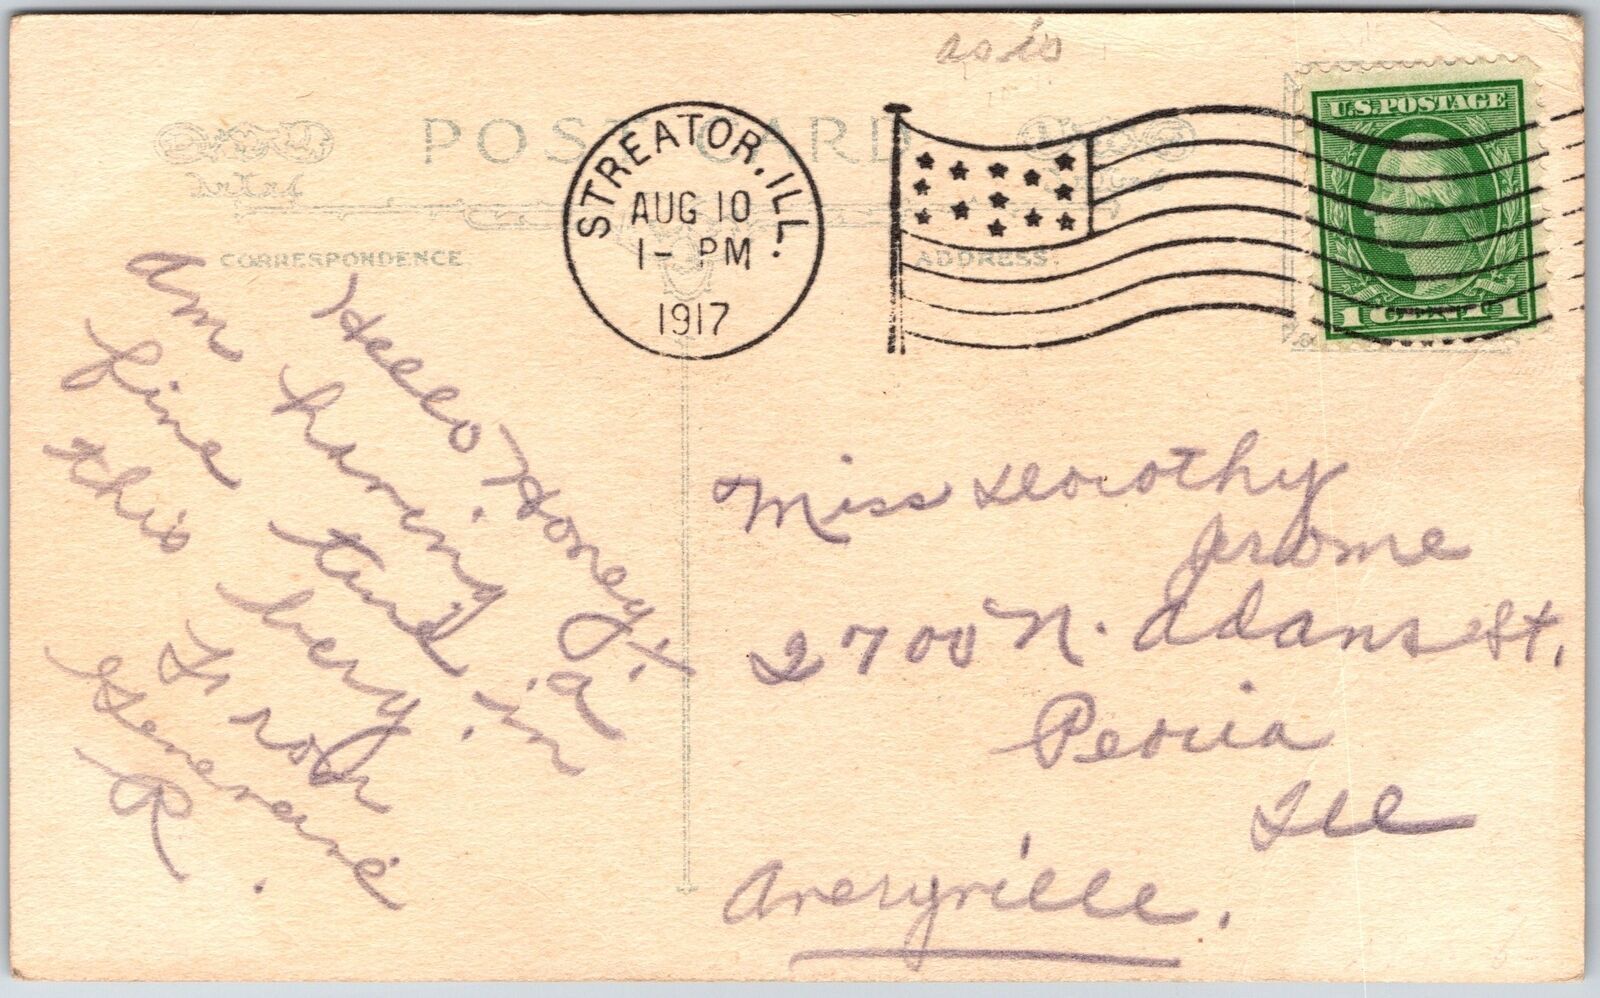 as is
POST CARD
STREATOR, ILL.
AUG 10
1- PM
1917
U.S. POSTAGE
1 CENT 1
CORRESPONDENCE
ADDRESS.
Hello Honey:
Am having a
fine time in
this berg.
From
Genevave
R.
Miss Dorothy
Jerome
2700 N. Adams St.
Peoria
Ill
Averyville.